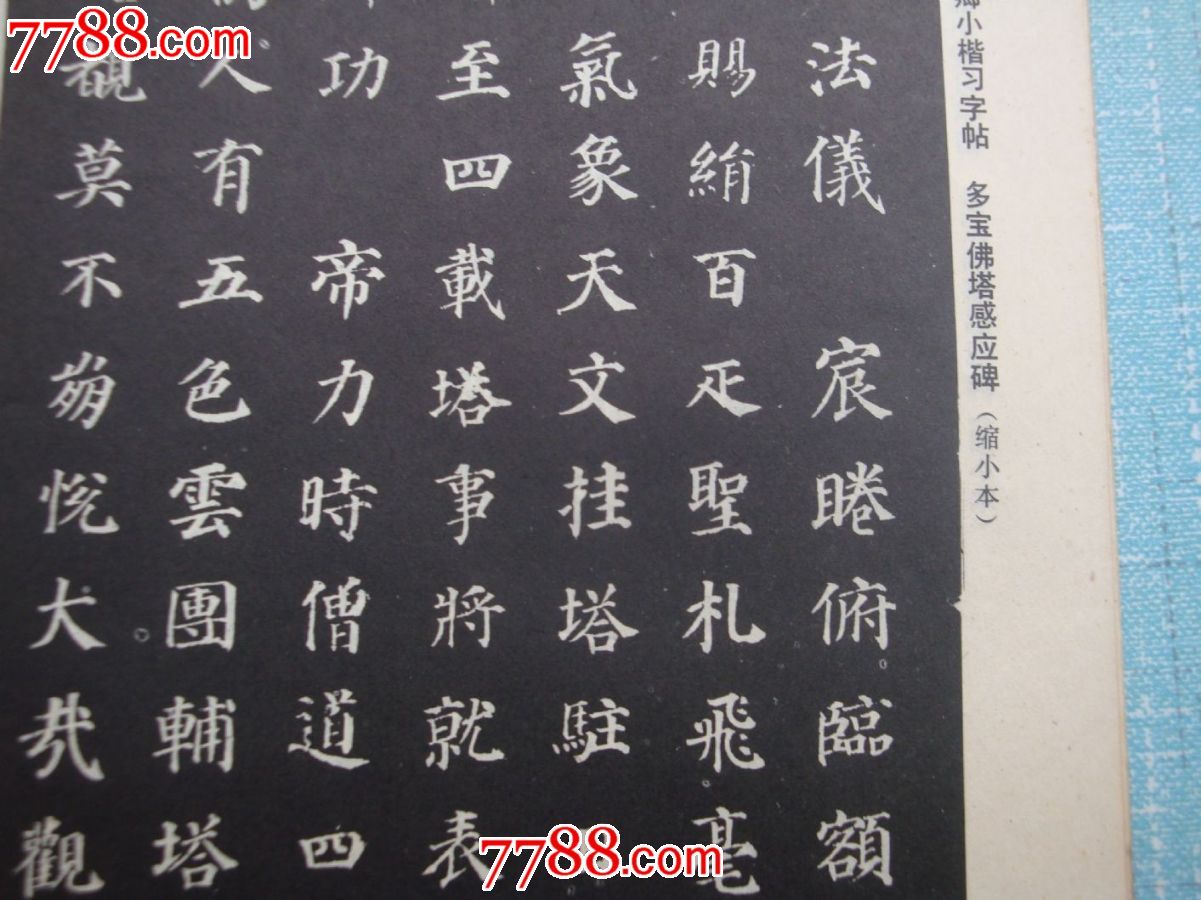 7788.com
小楷习字帖 多宝佛塔感应碑（缩小本）
法儀 宸睠俯臨額
賜絹百疋聖札飛毫
氣象天文挂塔駐
至四載塔事將就表
功 帝力時僧道四
人有五色雲團輔塔
莫不崩悅大哉觀
7788.com